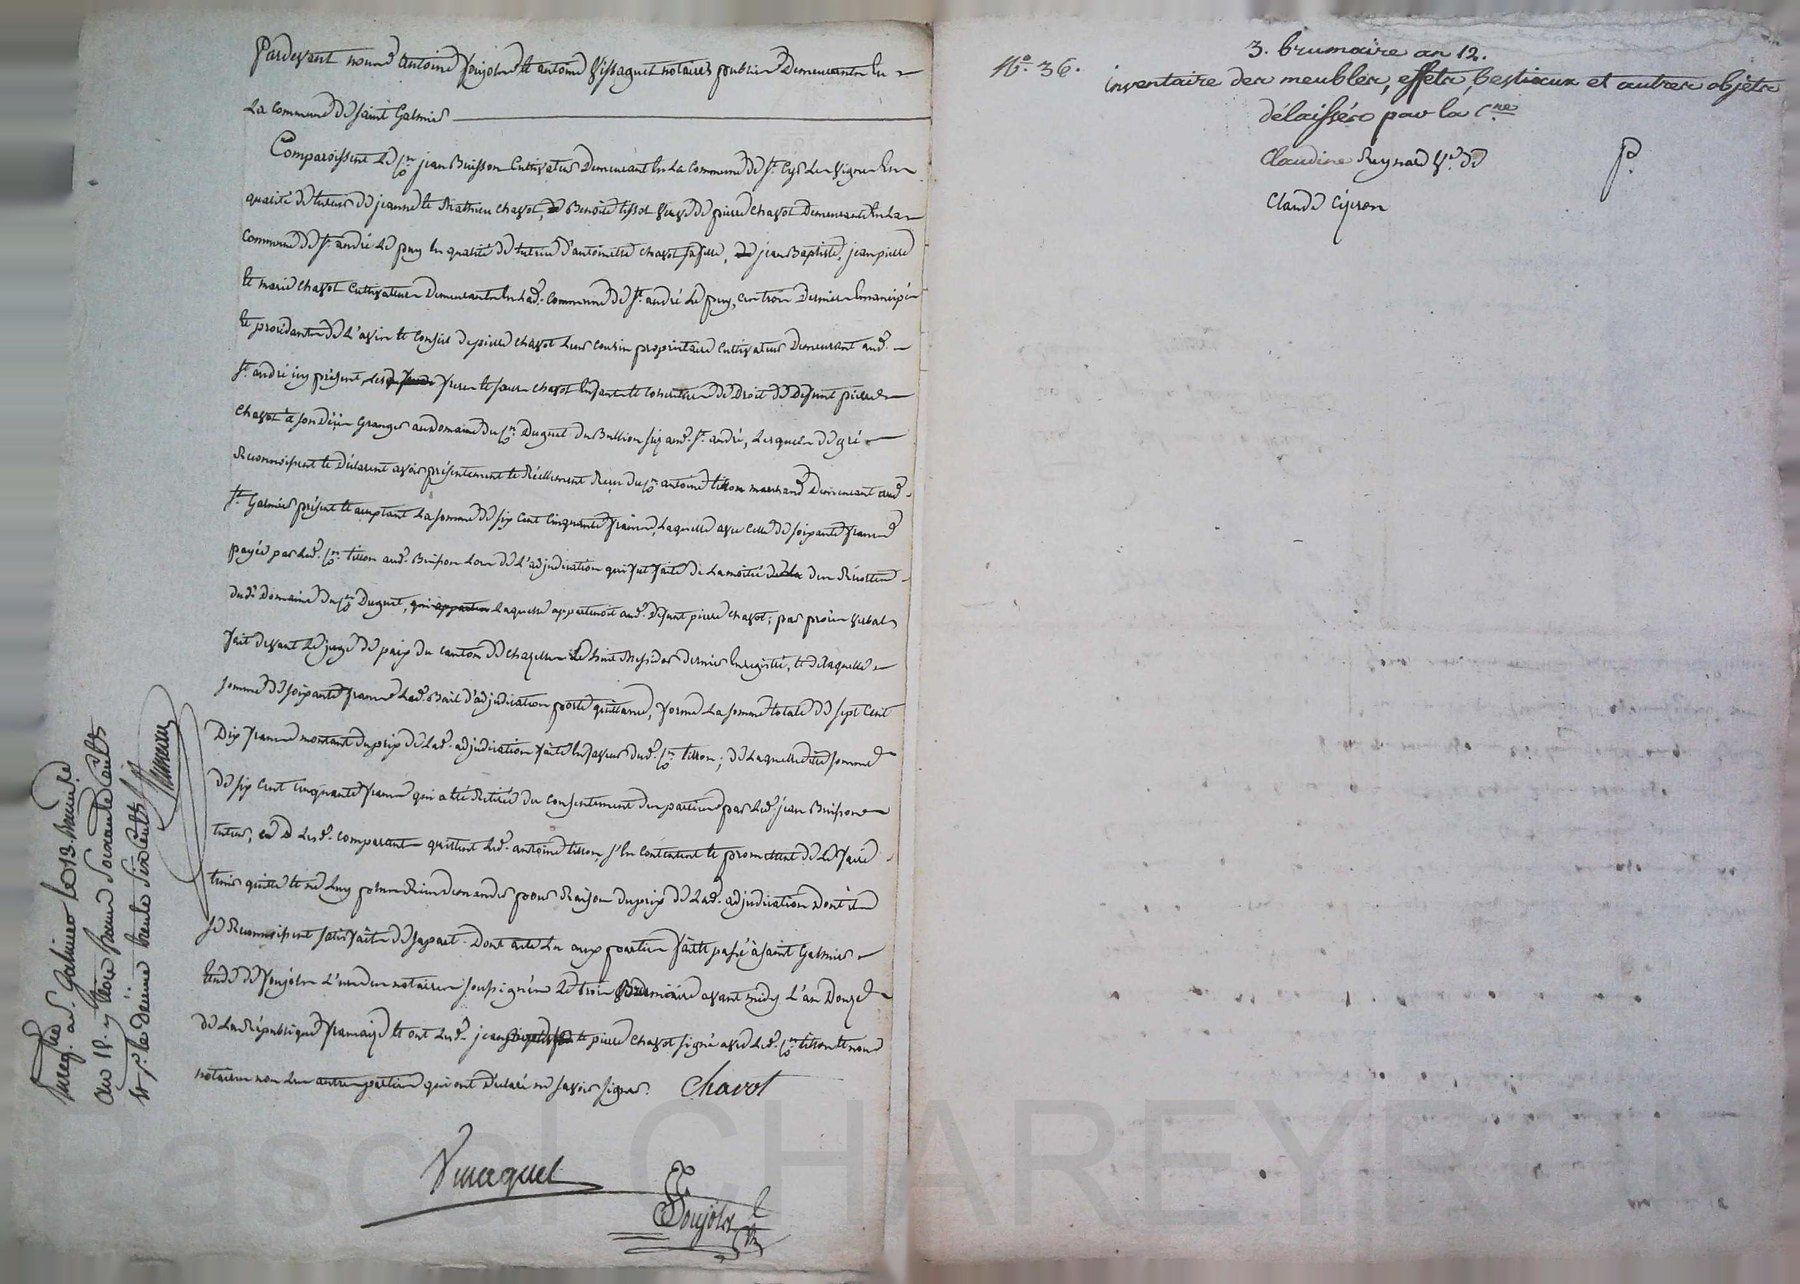 Pardevant nous Antoine Poujols et antoine Vissaguet notaires publics Demeurants En
La Commune de Saint Galmier
Comparoissent Le Cn jean Buisson Cultivateur Demeurant En La Commune de St. Cyr Les Vignes En
qualité de tuteur de jeanne et Mathieu Chavot, Benoite tissot Veuve de pierre Chavot Demeurante En La
Commune de St. andré Le puy En qualité de tutrice d'antoinette Chavot sa fille, jean Baptiste, jean pierre
et marie Chavot Cultivateurs Demeurants En Lad. Commune de St. andré Le puy, ces trois Derniers Emancipés
et procédants de L'avis et Conseil de pierre Chavot Leur Cousin propriétaire Cultivateur Demeurant aud.
St. andré icy présent, Lesd. freres et soeurs Chavot Enfants et Cohéritiers de Droit de Defunt pierre
Chavot à son Décès Granger au Domaine du Cn. Duguet du Bullion sis aud. St. andré, Lesquels de gré
Reconnoissent et Déclarent avoir présentement et Réellement Reçu du Cn antoine tisson marchand Demeurant aud.
St. Galmier présent et acceptant La somme de six Cent Cinquante francs, Laquelle avec Celle de soixante francs
payée par Led. Cn. tisson aud. Buisson Lors de L'adjudication qui fut faite de La moitié des Récoltes
dud. Domaine du Cn Duguet, Laquelle appartenoit aud. Defunt pierre Chavot; par procès Verbal
fait devant Le juge de paix du Canton de Chazelles Le huit Messidor dernier Enregistré, et de Laquelle
somme de soixante francs Led. Bail d'adjudication porte quittance, forme La somme totale de sept Cent
Dix francs montant du prix de Lad. adjudication faite En faveur dud. Cn. tisson; de Laquelle dite somme
de six Cent Cinquante francs qui a été Retirée du Consentement des parties par Led. jean Buisson
tuteur, Lesd. Comparants quittent Led. antoine tisson, s'En Contentent et promettent de Le faire
tenir quitte et ne Luy plus Rien demander pour Raison du prix de Lad. adjudication Dont ils
se Reconnoissent satisfaits de sa part. Dont acte Lu aux parties fait et passé à Saint Galmier
Etude de Poujols L'un des notaires soussignés Le trois Brumaire avant midy L'an Douze
de La République française et ont Lesd. jean et pierre Chavot signé avec Led. Cn. tisson et nous
notaires non Les autres parties qui ont Déclaré ne savoir signer. Chavot
Vissaguet
Poujols
Enreg. à St. Galmier Le 13. brumaire
an 12. Reçu francs soixante Cents
et pr. le dixième trente six Cents
No. 36.
3. brumaire an 12.
inventaire des meubles, effets, bestiaux et autres objets
délaissés par la Cne
Claudine Reynard Ve. de
Claude Cizeron
P.
Pascal CHAREYRON